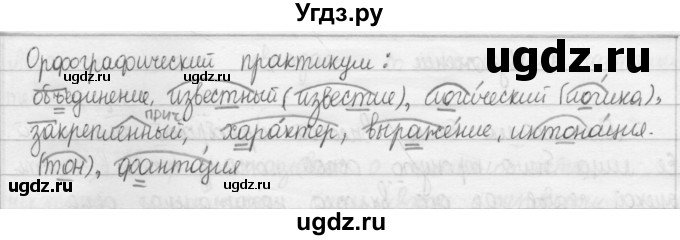 Угдз.ру
Орфографический практикум:
объединение, известный (известие), логический (логика),
прич.
закреплённый, характер, выражение, интонация.
(тон), фантазия
ugdz.ru ugdz.ru ugdz.ru ugdz.ru
ugdz.ru ugdz.ru ugdz.ru